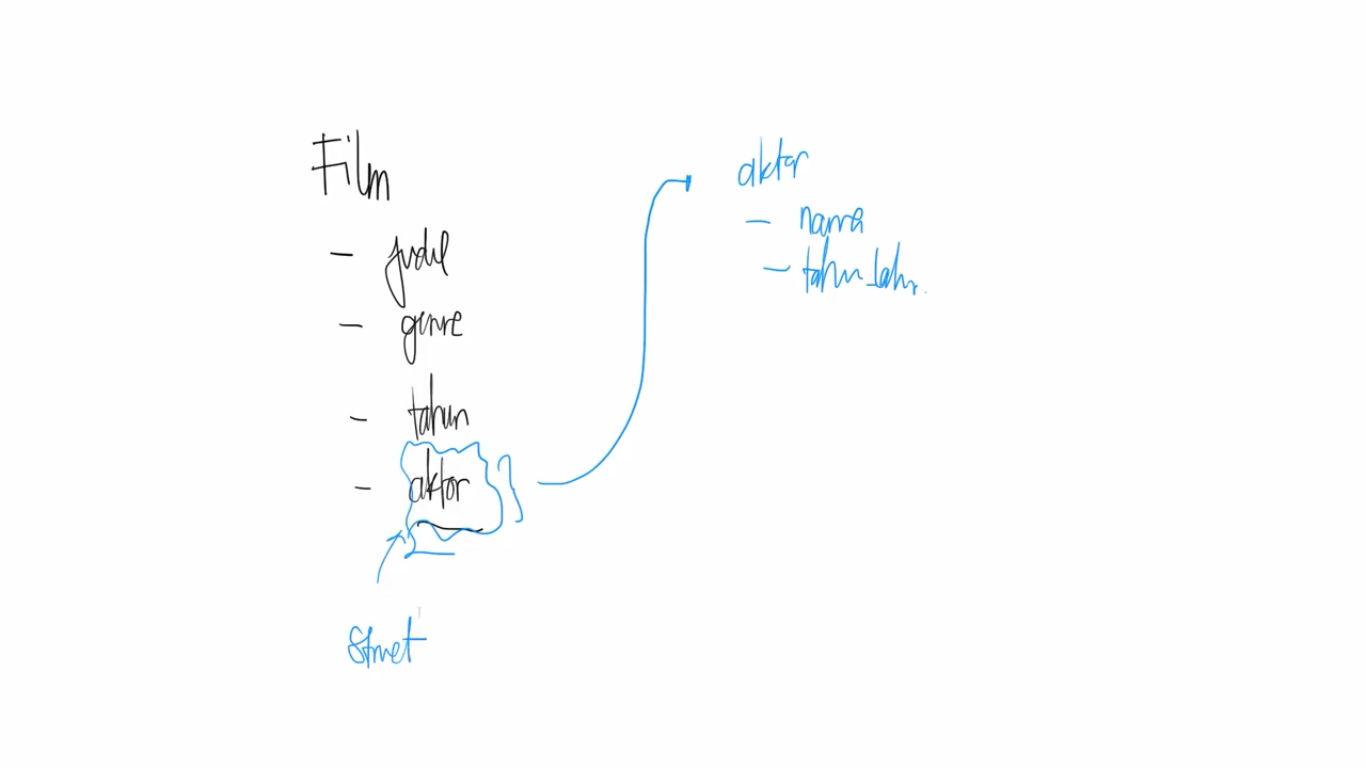 Film
- judul
- genre
- tahun
- aktor
struct
aktor
- nama
- tahun_lahir